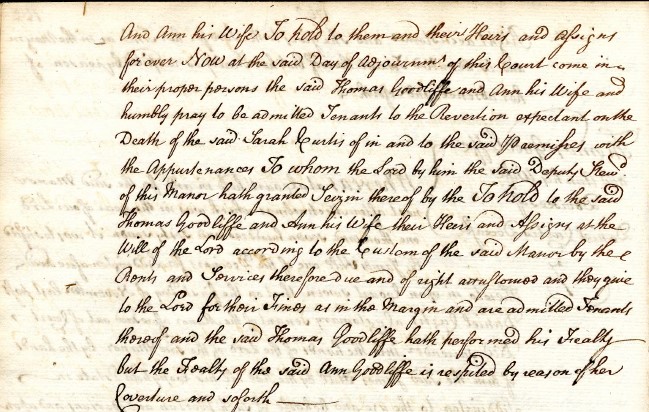 And Ann his Wife To hold to them and their Heirs and Assigns
for ever Now at the said Day of Adjournmt. of this Court come in
their proper persons the said Thomas Goodliffe and Ann his Wife and
humbly pray to be admitted Tenants to the Revertion expectant on the
Death of the said Sarah Curtis of in and to the said Premisses with
the Appurtenances To whom the Lord by him the said Deputy Stewd.
of this Manor hath granted Seizin thereof by the To hold to the said
Thomas Goodliffe and Ann his Wife their Heirs and Assigns at the
Will of the Lord according to the Custom of the said Manor by the
Rents and Services therefore due and of right accustomed and they give
to the Lord for their Fines as in the Margin and are admitted Tenants
thereof and the said Thomas Goodliffe hath performed his Fealty
but the Fealty of the said Ann Goodliffe is respited by reason of her
Coverture and soforth